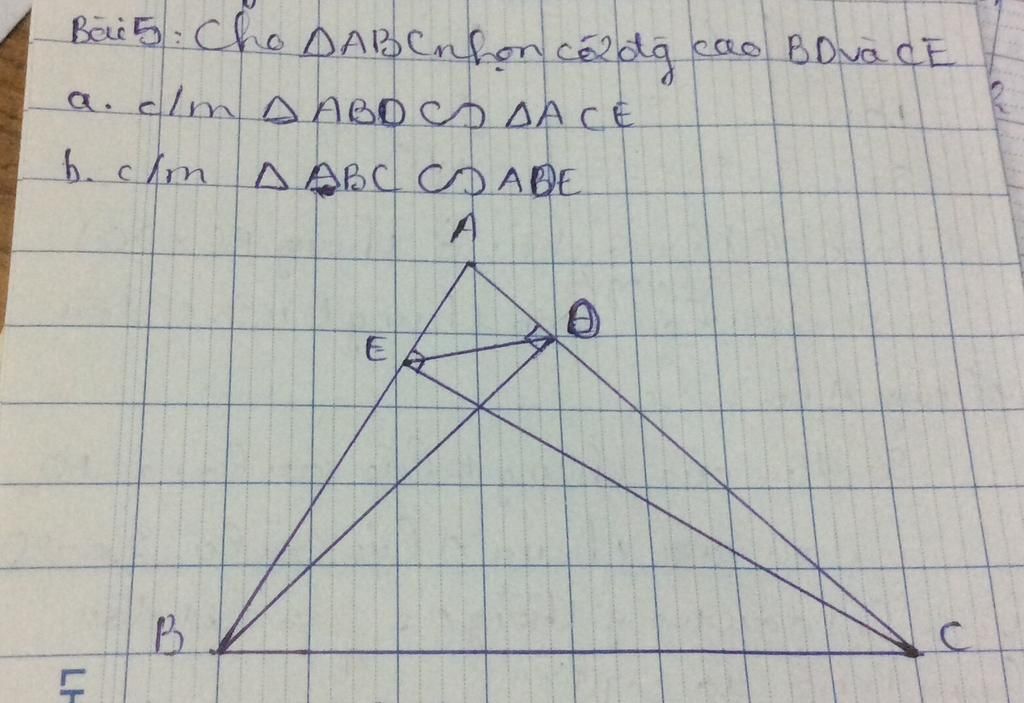 Bài 5: Cho ΔABC nhọn có 2 đg cao BD và CE
a. c/m ΔABD ∽ ΔACE
b. c/m ΔABC ∽ ADE
A
E D
B C